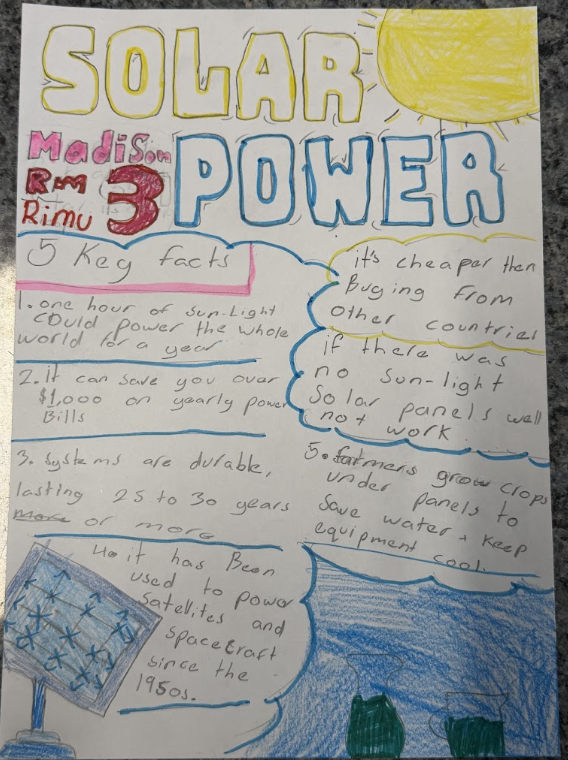 SOLAR
POWER
Madison
Rm 3
Rimu
5 Key facts
1. one hour of sun-Light
could power the whole
world for a year
2. it can save you over
$1,000 on yearly power
Bills
3. Systems are durable,
lasting 25 to 30 years
more or more
4. it has Been
used to power
Satellites and
Spacecraft
since the
1950s.
it's cheaper then
Buying from
other countries
if there was
no sun-light
Solar panels well
not work.
5. farmers grow crops
under panels to
save water + keep
equipment cool.